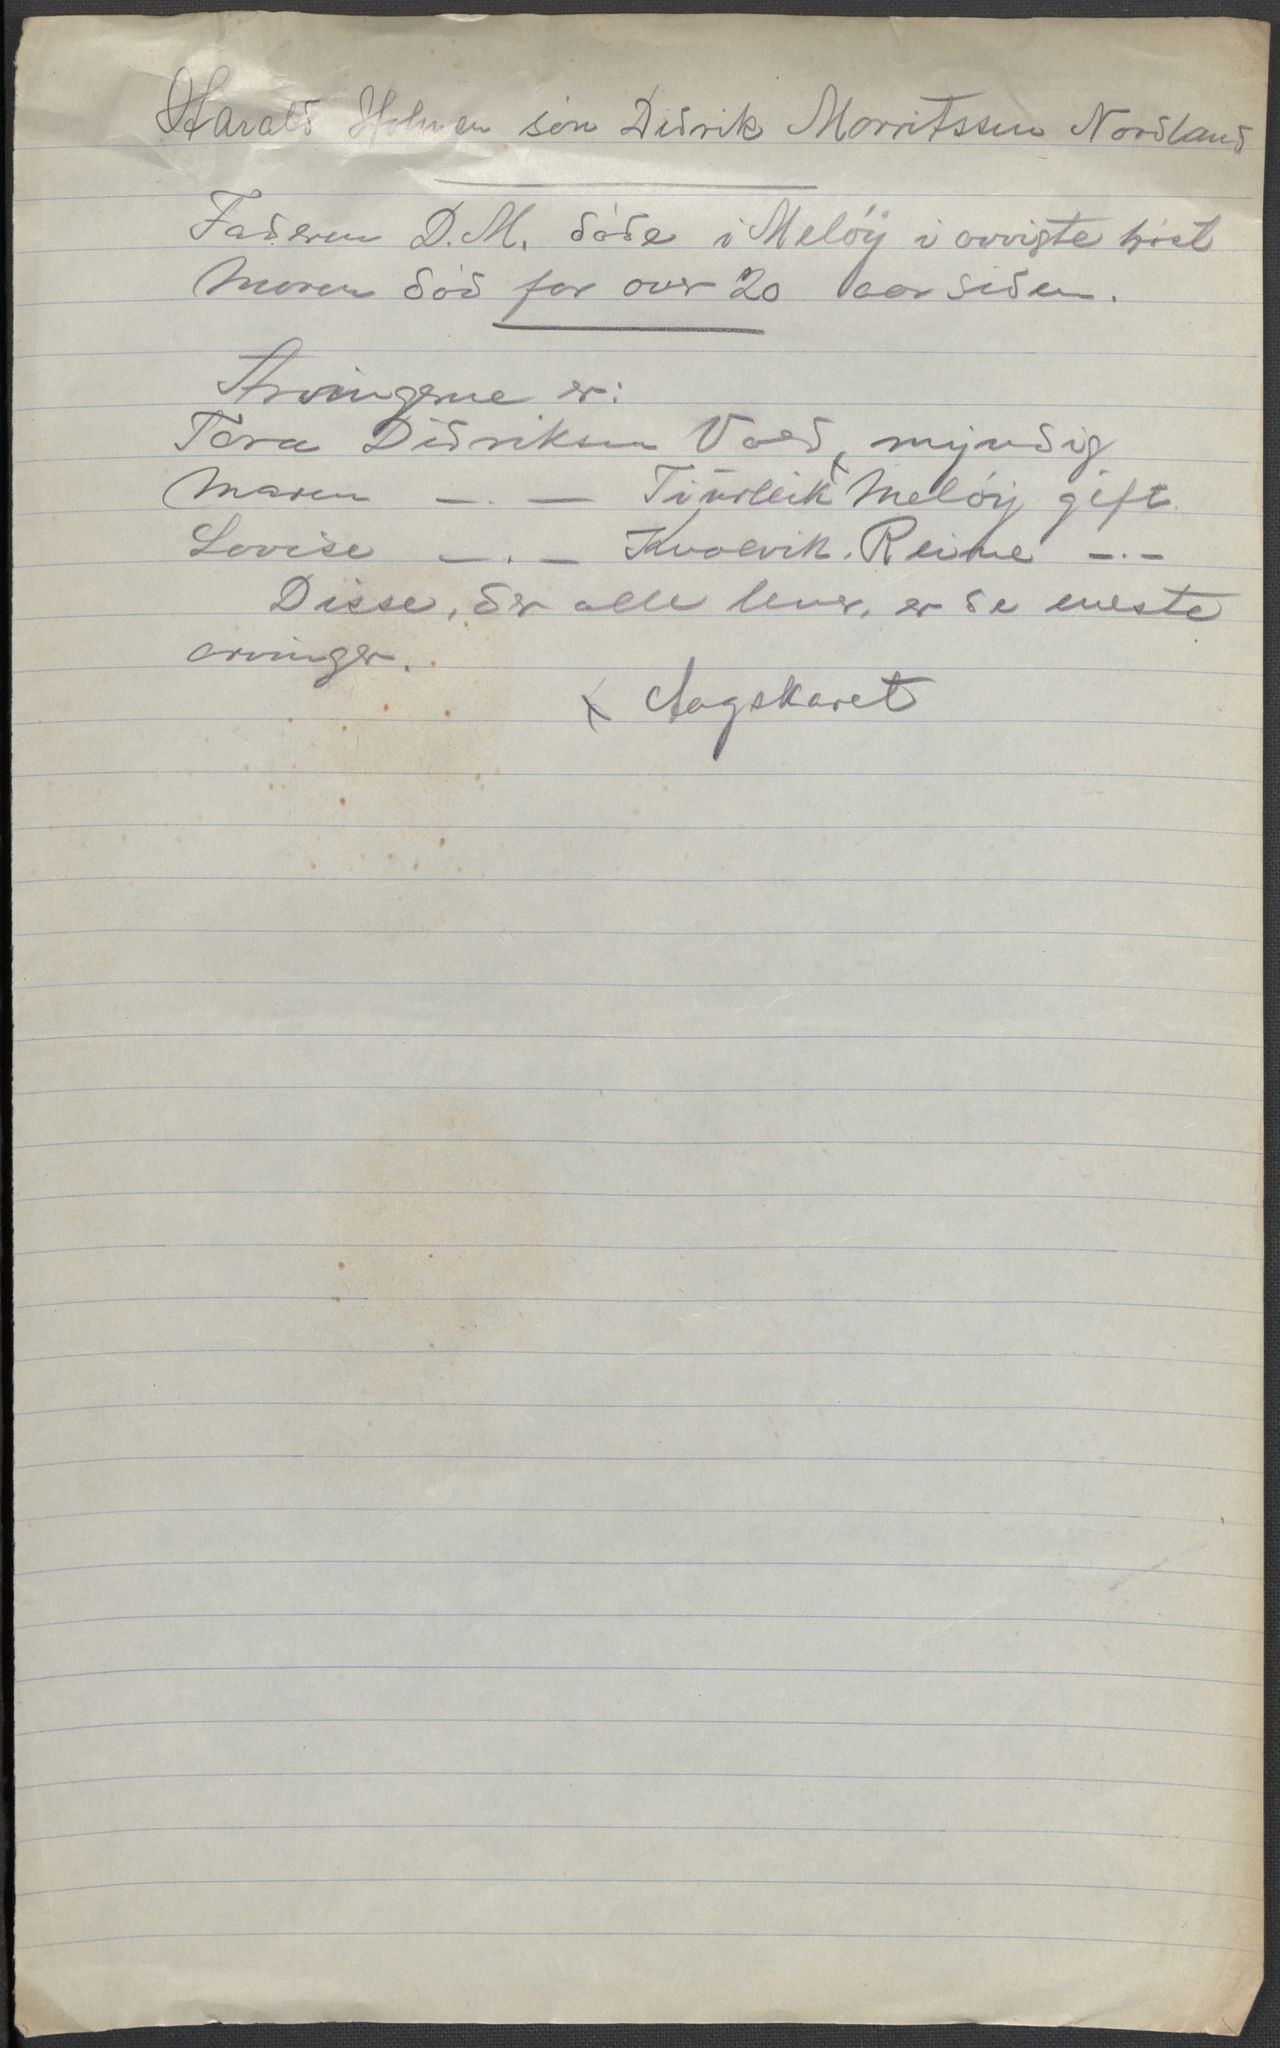 Harald Holmen sön Didrik Morritssen Nordland
Faderen D.M. döde i Melöy i avvigte höst
Moren död for over 20 aar siden.
Arvingerne er:
Tora Didriksen Vold, myndig
Maren —.— x Melöy gift
Lovise —.— Kvalvik. Reine —.—
Disse, der alle lever, er de eneste
arvinger.
x Aagskaret